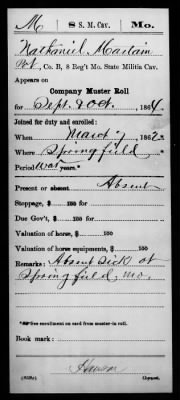 M | 8 S. M. Cav. | Mo.
Nathaniel Martain
Pvt, Co. B, 8 Reg't Mo. State Militia Cav.
Appears on
Company Muster Roll
for Sept. & Oct., 1864
Joined for duty and enrolled:
When March 7, 1862
Where Springfield
Period War years.*
Present or absent Absent
Stoppage, $ 100 for
Due Gov't, $ 100 for
Valuation of horse, $ 100
Valuation of horse equipments, $ 100
Remarks: Absent Sick at
Springfield, Mo.
*See enrollment on card from muster-in roll.
Book mark:
Copyist.